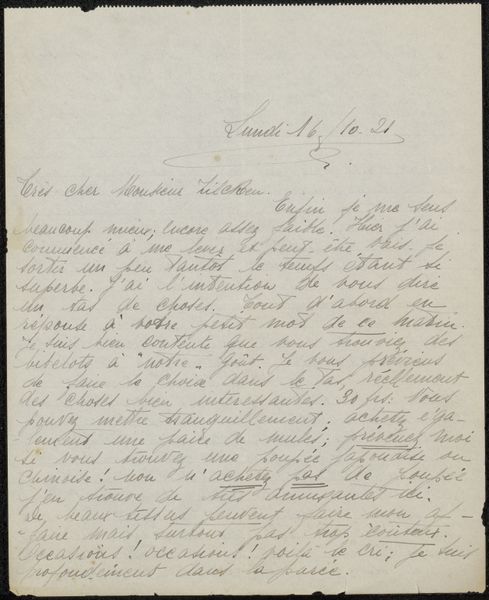 Lundi 16/10.21
Très cher Monsieur Zilcken.
Enfin je me sens
beaucoup mieux, encore assez faible. Hier j'ai
commencé à me lever et peut-être vais je
sortir un peu tantôt le temps étant si
superbe. J'ai l'intention de vous dire
un tas de choses. Tout d'abord en
réponse à votre petit mot de ce matin.
Je suis bien contente que vous trouviez des
bibelots à "notre" goût. Je vous préviens
de faire le choix dans le tas, réellement
des choses bien intéressantes. 30 frs. Vous
pouvez mettre tranquillement, achetez éga-
lement une paire de mules;
si vous trouvez une poupée japonaise ou
chinoise! non n'achetez pas de poupée
j'en trouve de très amusantes ici.
De beaux tissus peuvent faire mon af-
faire mais surtout pas trop couteux.
Occasions! occasions! voilà le cri; je suis
profondément dans la purée.